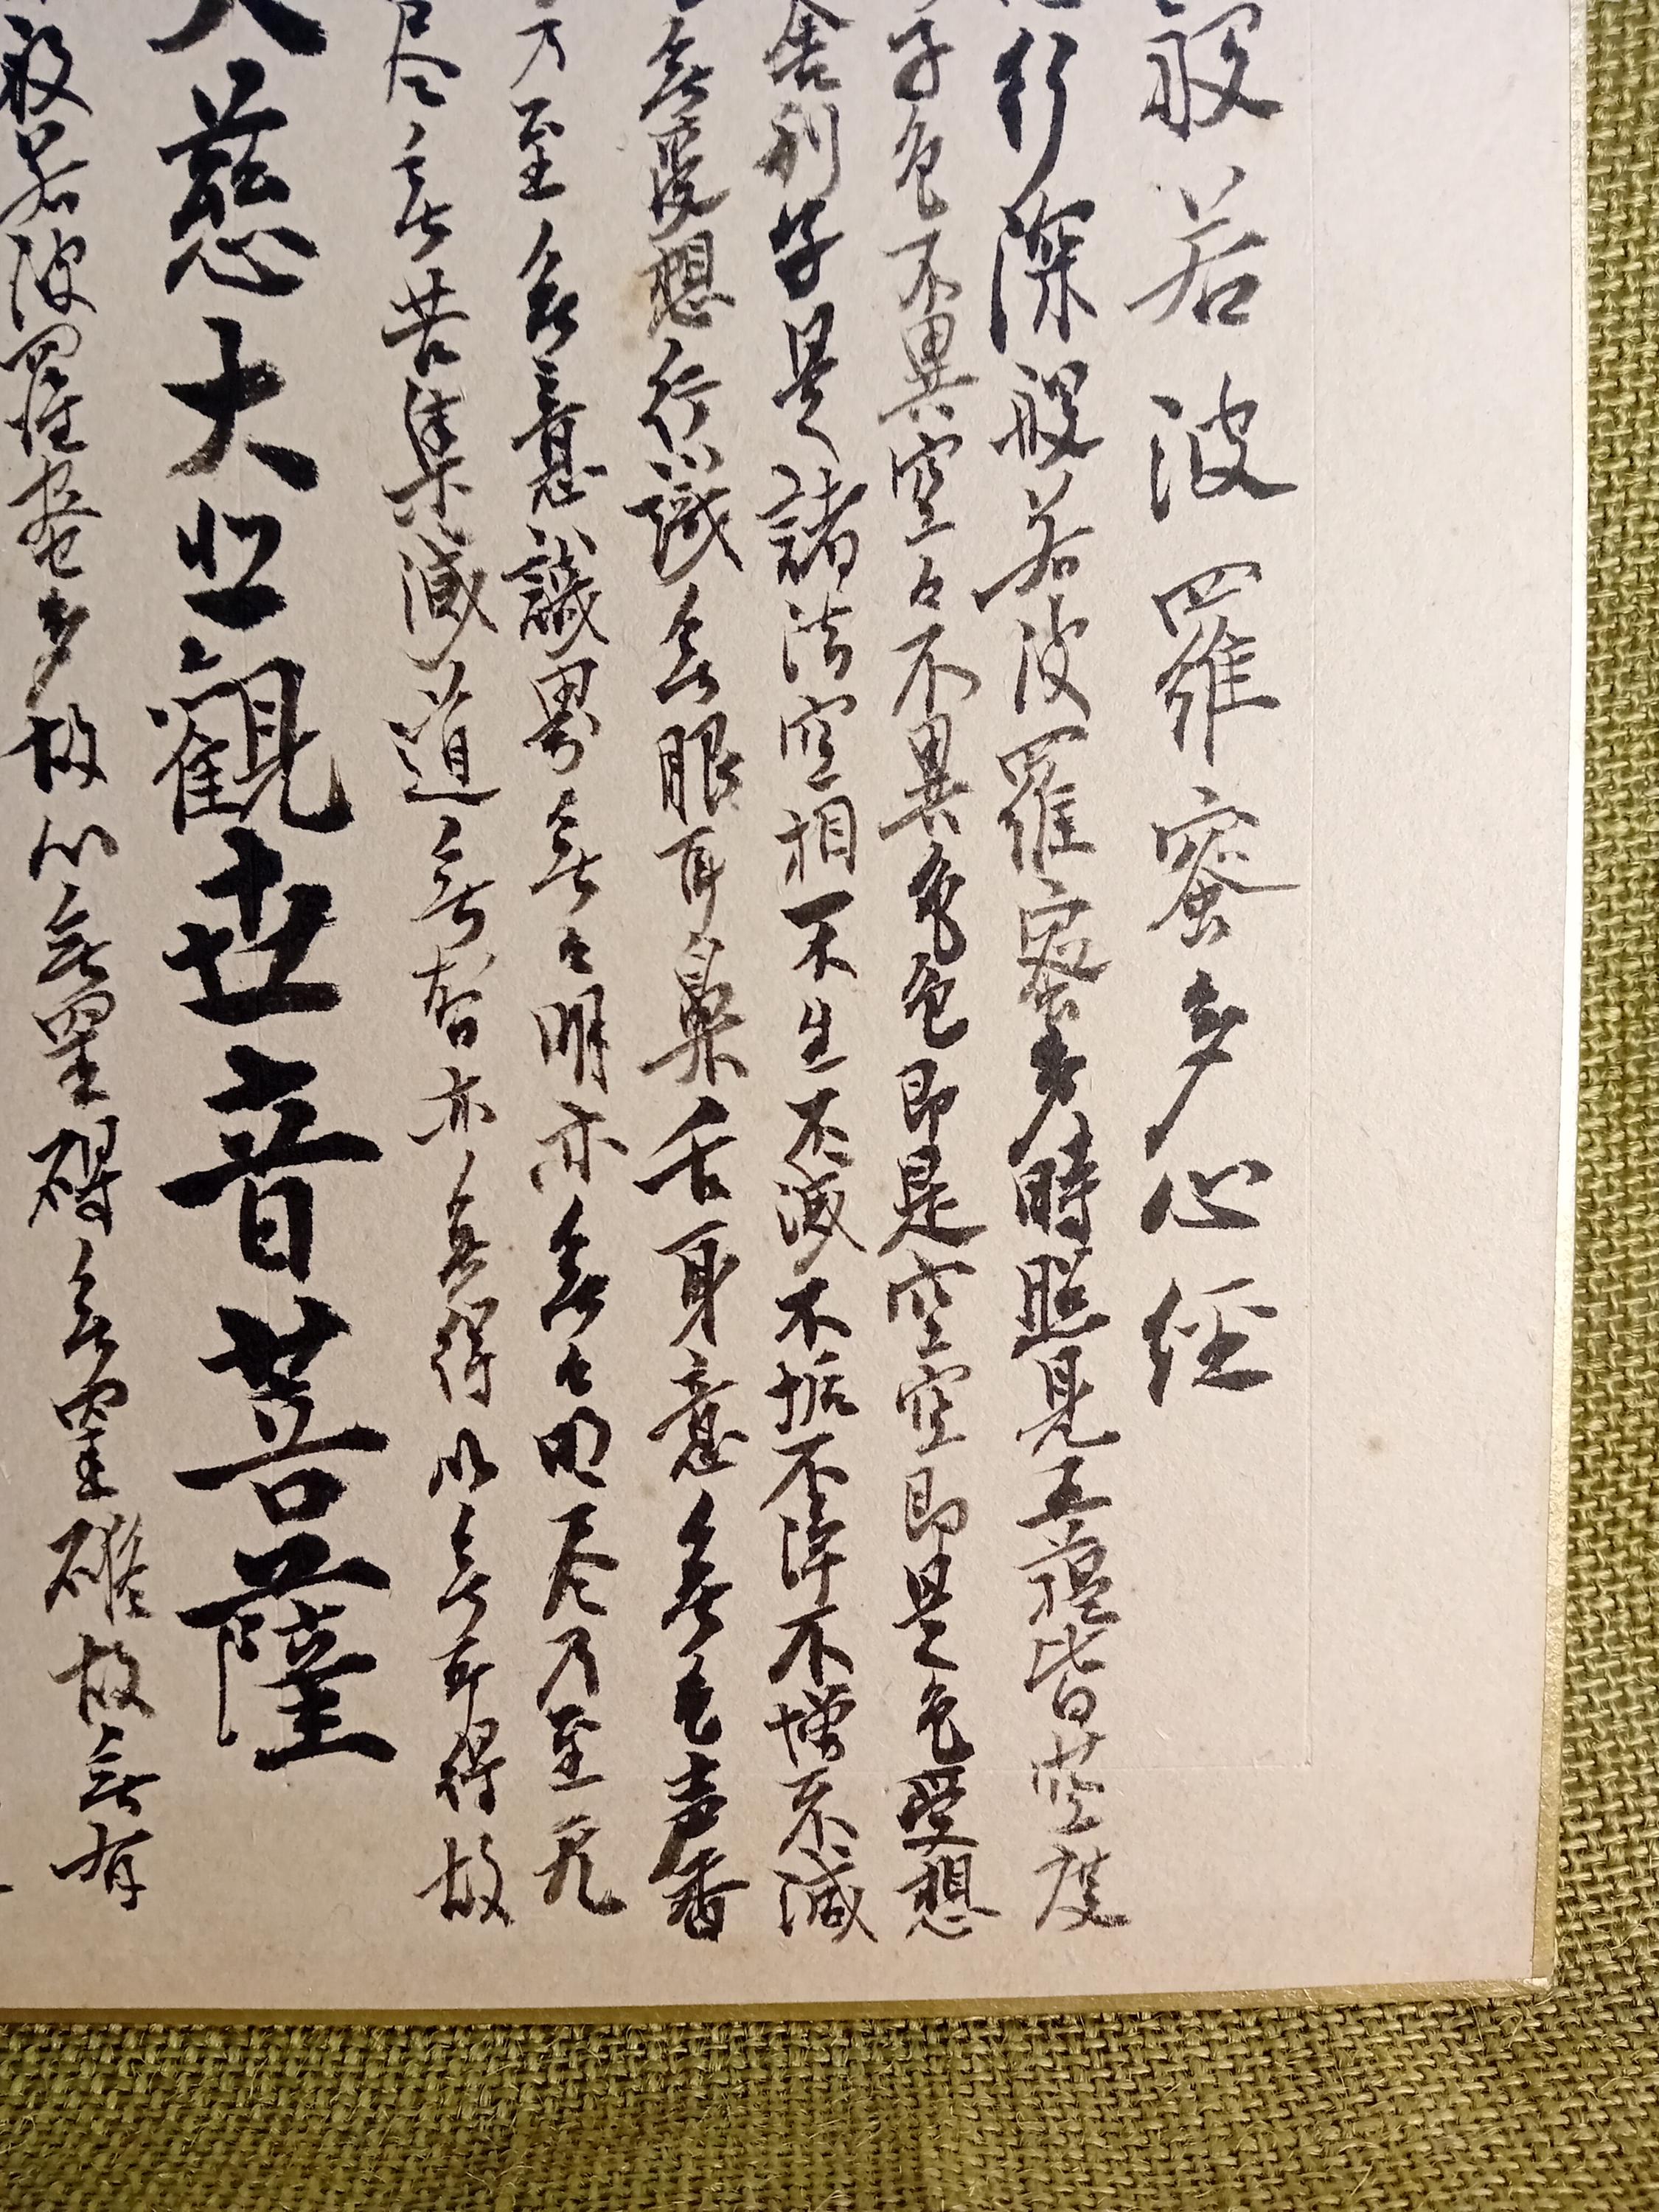 般若波羅蜜多心経
行深般若波羅蜜多時照見五蘊皆空度
子色不異空々不異色色即是空空即是色受想
舎利子是諸法空相不生不滅不垢不浄不増不減
無受想行識無眼耳鼻舌身意無色声香
乃至無意識界無々明亦無々明尽乃至无
尽無苦集滅道無智亦無得以無所得故
大慈大悲觀世音菩薩
般若波羅蜜多故心無罣碍無罣礙故無有